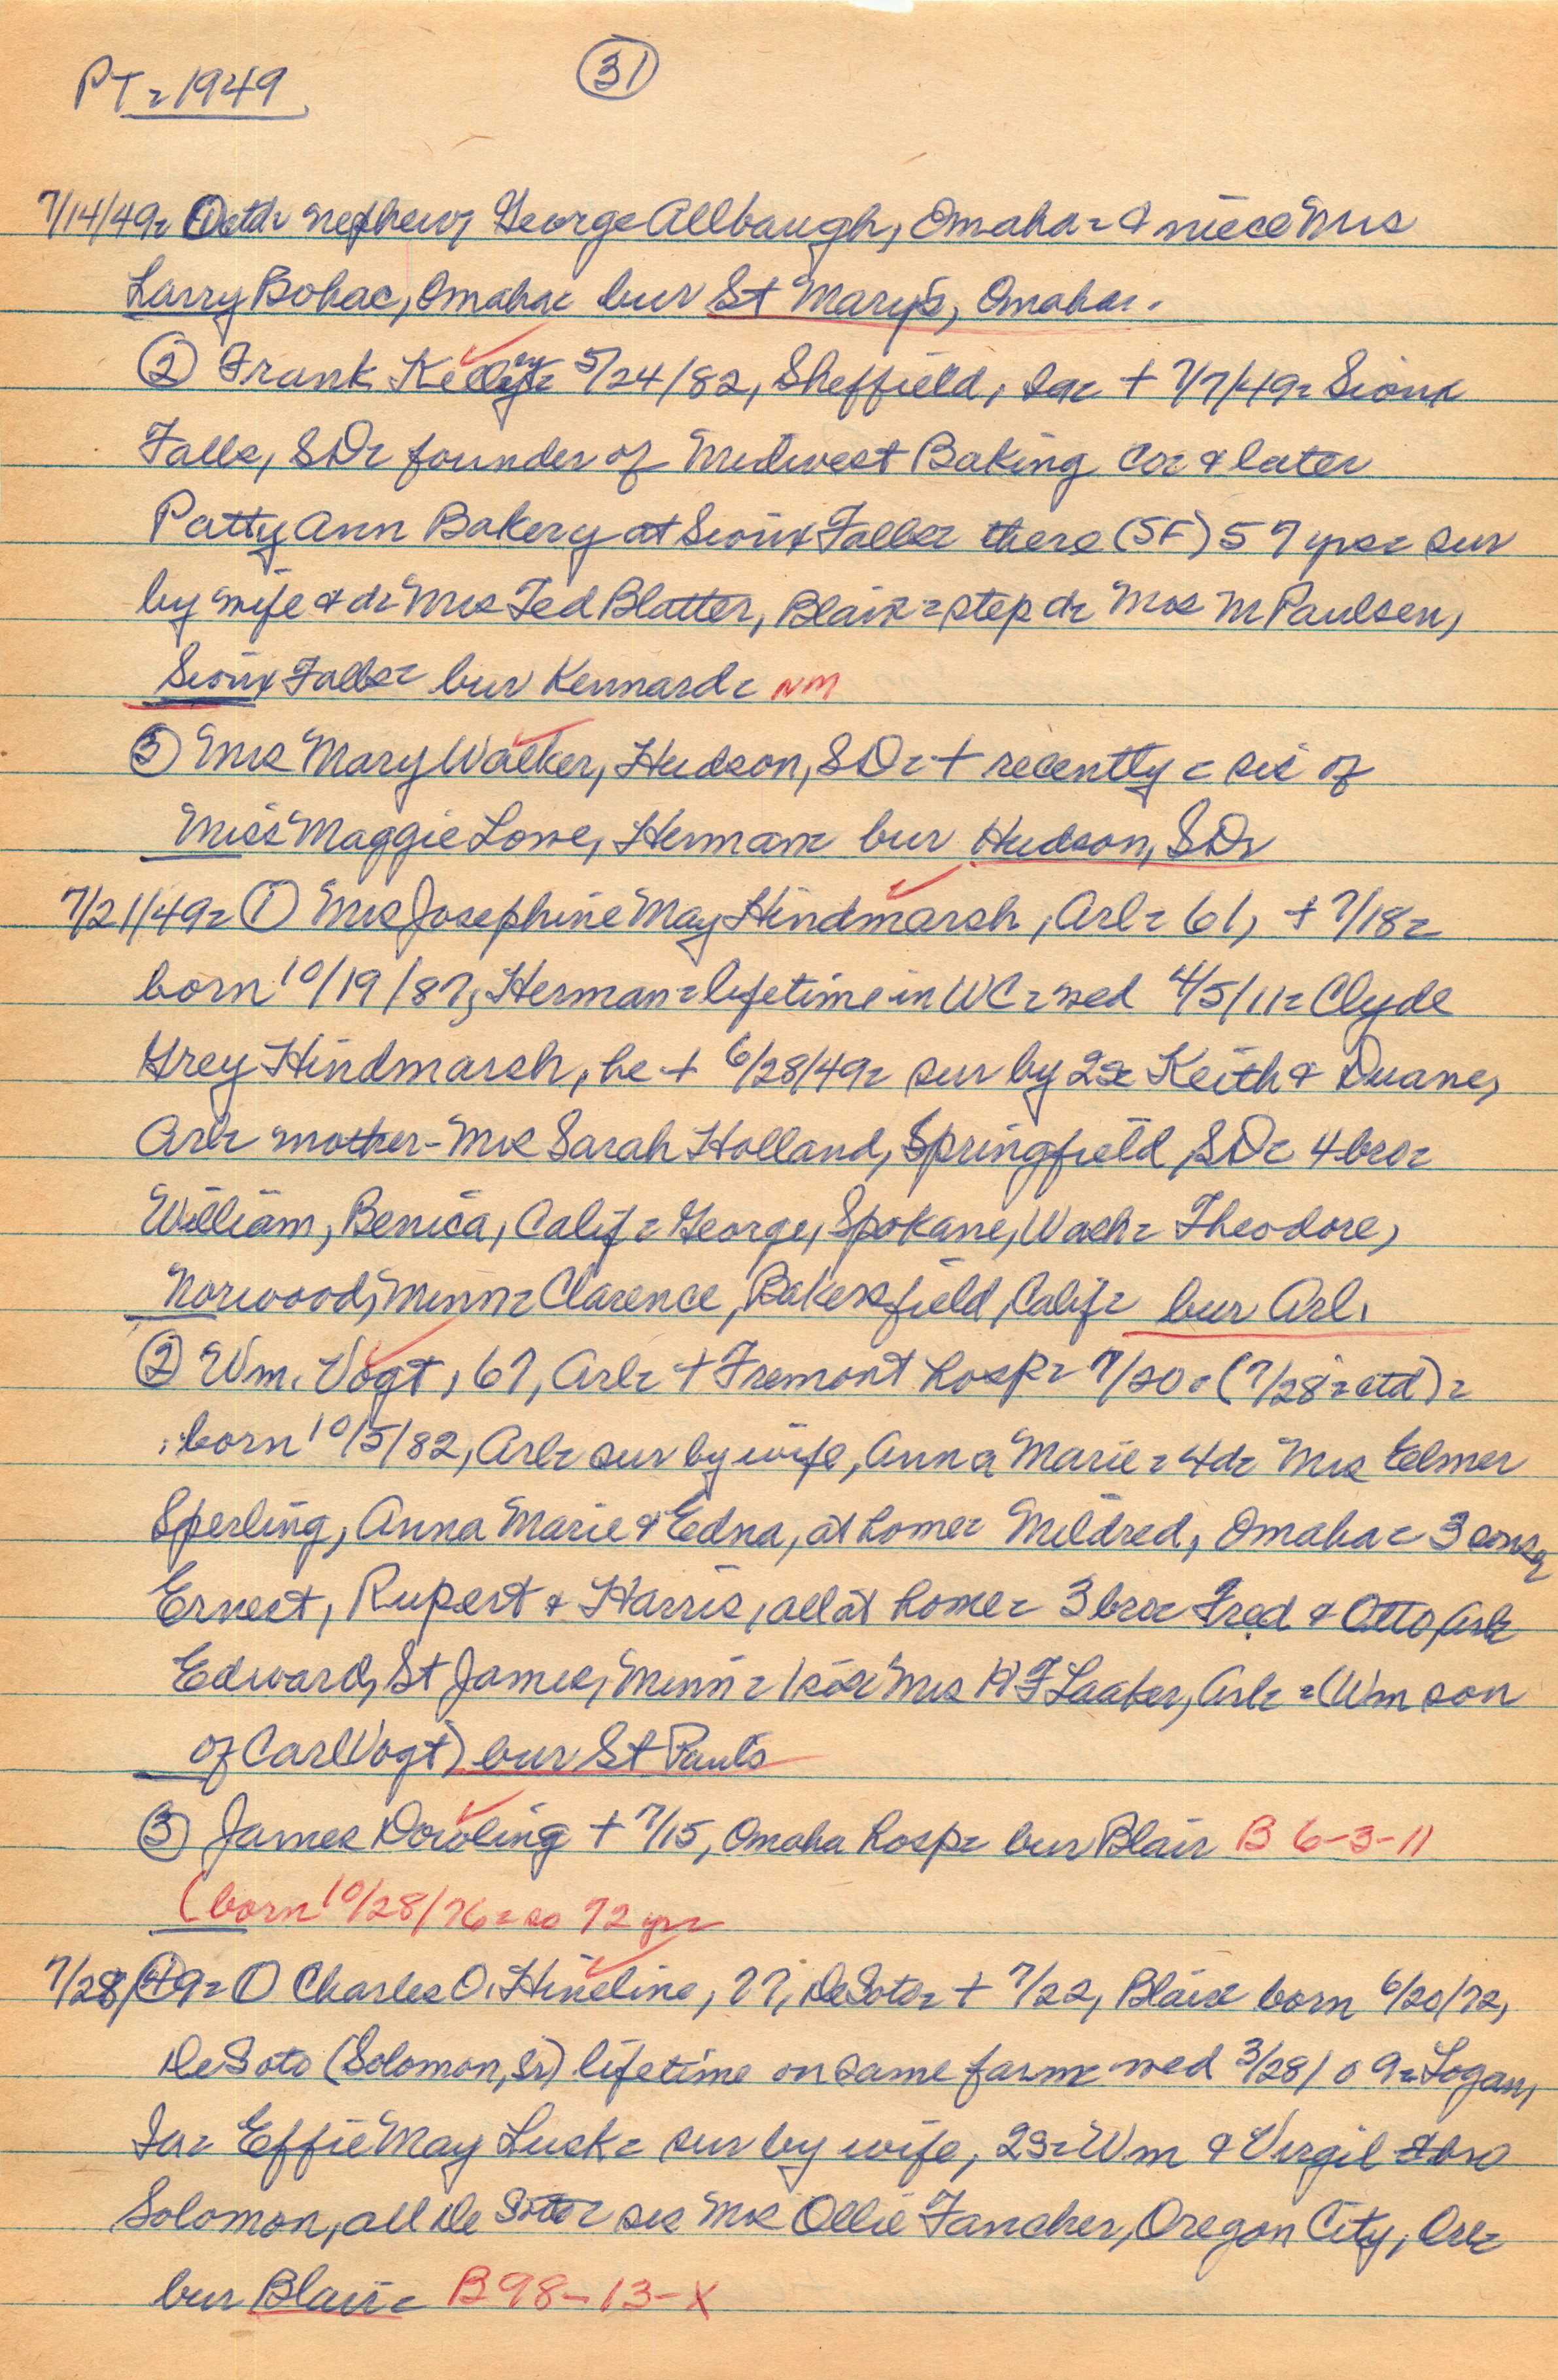 PT = 1949
31
7/14/49 = ① ctd = nephew, George Allbaugh, Omaha = & niece Mrs
Larry Bohac, Omaha = bur St Mary's, Omaha =.
② Frank Kelley = 5/24/82, Sheffield, Ia = + 7/7/49 = Sioux
Falls, SD = founder of Midwest Baking Co = & later
Patty Ann Bakery at Sioux Falls = there (SF) 57 yrs = sur
by wife & d = Mrs Ted Blatter, Blair = step d = Mrs M Paulsen,
Sioux Falls = bur Kennard = NM
③ Mrs Mary Walker, Hudson, SD = + recently = sis of
Miss Maggie Lowe, Herman = bur Hudson, SD =
7/21/49 = ① Mrs Josephine May Hindmarsh, Arl = 61, + 7/18 =
born 10/19/87, Herman = lifetime in WC = wed 4/5/11 = Clyde
Grey Hindmarsh, he + 6/28/49 = sur by 2s = Keith & Duane,
Arl = mother - Mrs Sarah Holland, Springfield, SD = 4 bro =
William, Benica, Calif = George, Spokane, Wash = Theodore,
Norwood, Minn = Clarence, Bakersfield, Calif = bur Arl.
② Wm. Vogt, 67, Arl = + Fremont hosp = 7/20 = (7/28 = ctd) =
born 10/5/82, Arl = sur by wife, Anna Marie = 4d = Mrs Elmer
Sperling, Anna Marie & Edna, at home = Mildred, Omaha = 3 sons =
Ernest, Rupert & Harris, all at home = 3 bro = Fred & Otto, Arl =
Edward, St James, Minn = 1 sis = Mrs H F Laaker, Arl = (Wm son
of Carl Vogt) bur St Pauls
③ James Dowling + 7/15, Omaha hosp = bur Blair B 6-3-11
(born 10/28/76 = so 72 yr =
7/28/49 = ① Charles O. Hineline, 77, DeSoto = + 7/22, Blair = born 6/20/72,
DeSoto (Solomon, Sr) lifetime on same farm = wed 3/28/09 = Logan,
Ia = Effie May Lusk = sur by wife, 2s = Wm & Virgil & bro
Solomon, all De Soto = sis Mrs Ollie Fancher, Oregon City, Ore =
bur Blair = B 98-13-X